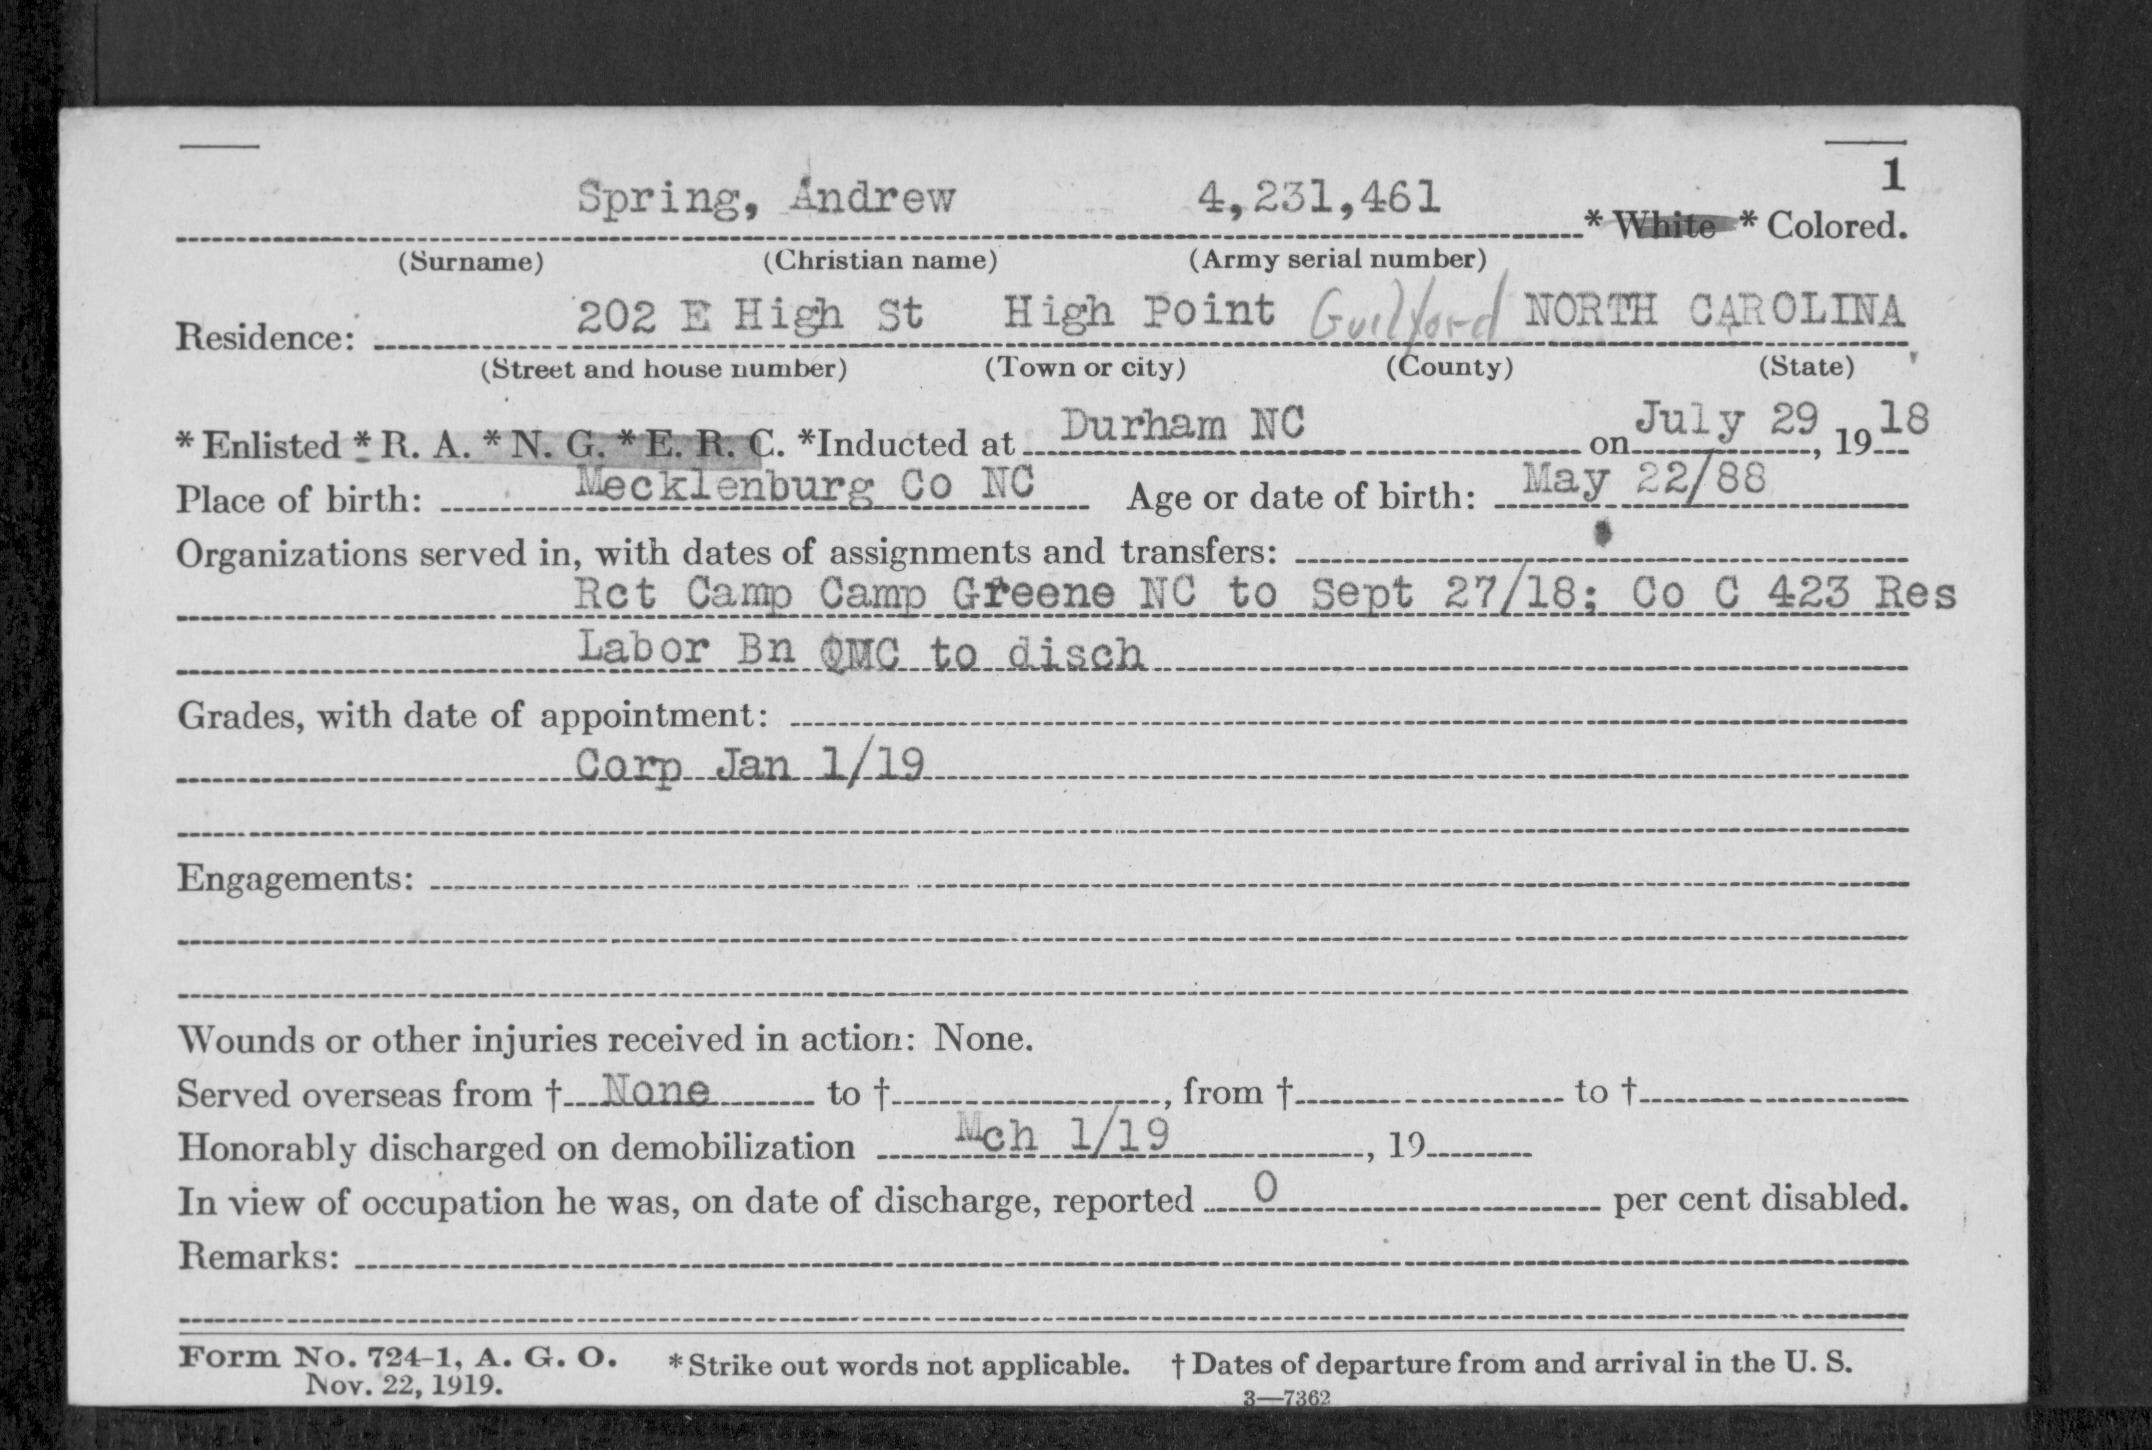 1
Spring, Andrew 4,231,461 * White * Colored.
(Surname) (Christian name) (Army serial number)
Residence: 202 E High St High Point Guilford NORTH CAROLINA
(Street and house number) (Town or city) (County) (State)
* Enlisted * R. A. * N. G. * E. R. C. *Inducted at Durham NC on July 29, 1918
Place of birth: Mecklenburg Co NC Age or date of birth: May 22/88
Organizations served in, with dates of assignments and transfers:
Rct Camp Camp Greene NC to Sept 27/18; Co C 423 Res
Labor Bn QMC to disch
Grades, with date of appointment:
Corp Jan 1/19
Engagements:
Wounds or other injuries received in action: None.
Served overseas from † None to †, from † to †
Honorably discharged on demobilization Mch 1/19, 19
In view of occupation he was, on date of discharge, reported 0 per cent disabled.
Remarks:
Form No. 724-1, A. G. O. * Strike out words not applicable. † Dates of departure from and arrival in the U. S.
Nov. 22, 1919.
3—7362